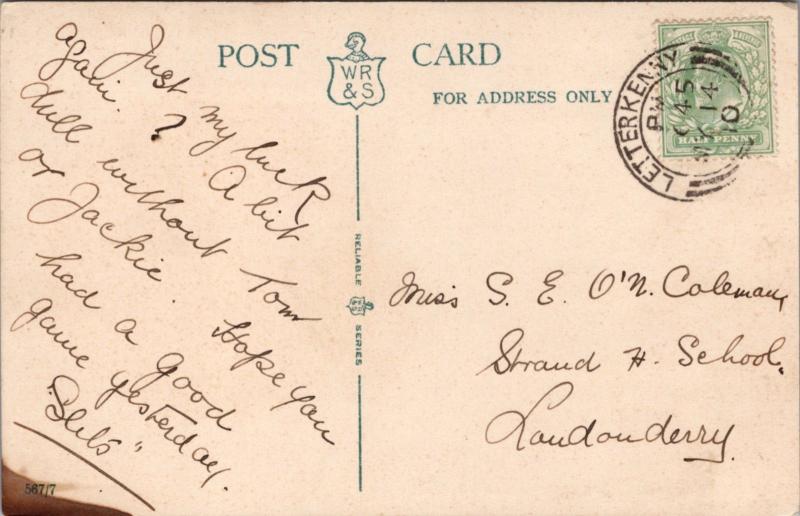 POST CARD
WR
& S
FOR ADDRESS ONLY
HALF PENNY
LETTERKENNY
6 45 PM
14
10
Just my luck
again. ? A bit
dull without Tom
or Jackie. Hope you
had a good
game yesterday.
"Slebs"
RELIABLE
SERIES
Miss S. E. O'N. Coleman,
Strand H. School.
Londonderry.
567/7